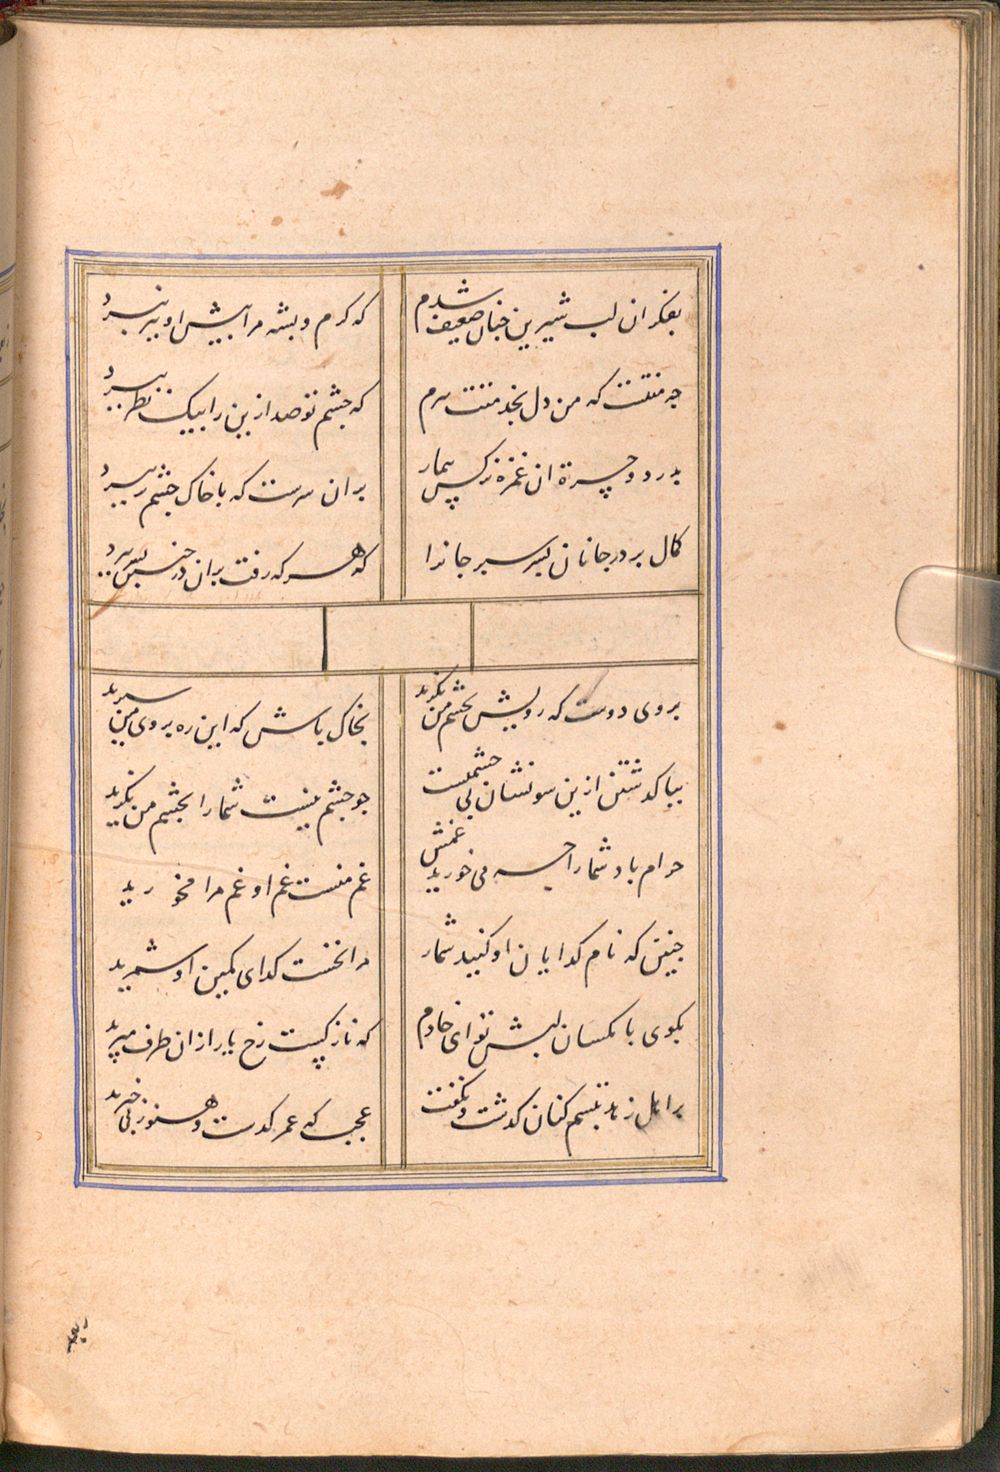 بفکر ان لب شیرین جنان ضعیف شدم که کرم و بشه مرا بیش او بپر ببرد
جه منتست که من دل بخدمتت برم که جشم تو صد ازین را بیک نظر ببرد
بدرد و ان غمزه نرکس بیمار بران سرست که با خاک جشم
کمال بر در جانان سر جانرا که هر که رفت بران در
بروی دوست که رویش بجشم من نکرید بخاک باش که این ره بروی من سپرید
بیا کدشتن ازین سو نشان بی جشمیست جو جشم نیست شمارا بجشم من نکرید
حرام باد شمارا می خورید غمش غم منست غم او غم مرا مخورید
جنین که نام کدایان او کنید شمار مرا نخست کدای کمین او شمرید
بکوی با مکسان لبش تو ای خادم که نازکست رخ یار ازان طرف مپرید
براهل زهد تبسم کنان کدشت و نکفت عجب که عمر کدست و هنوز بی خبرید